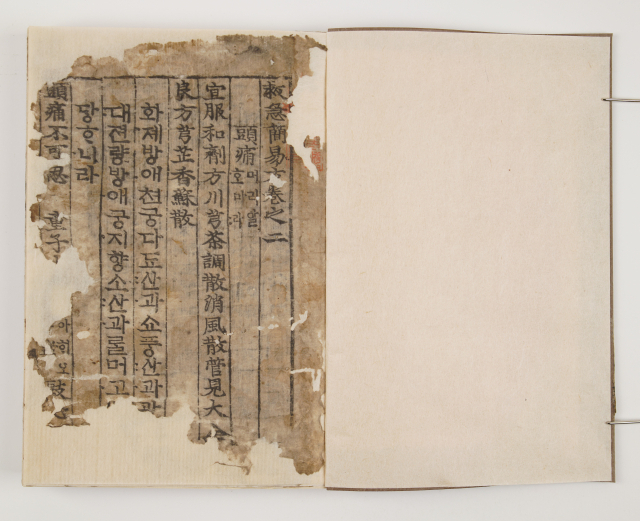 救急簡易方卷之二
頭痛머리앓호미라
宜服和劑方川芎茶調散消風散管見大全
良方芎芷香蘇散
화제방애쳔궁다됴산과쇼풍산과과
대젼량방애궁지향소산과ᄅᆞᆯ머고
당ᄒᆞ니라
頭痛不可忍 童子 아ᄒᆡ